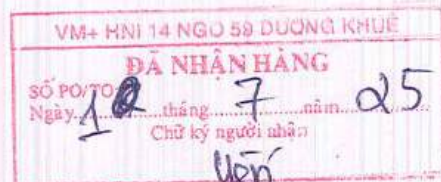 VM+ HNI 14 NGO 59 DUONG KHUÊ
ĐÃ NHẬN HÀNG
SỐ PO/TO
Ngày 10 tháng 7 năm 25
Chữ ký người nhận
Yến